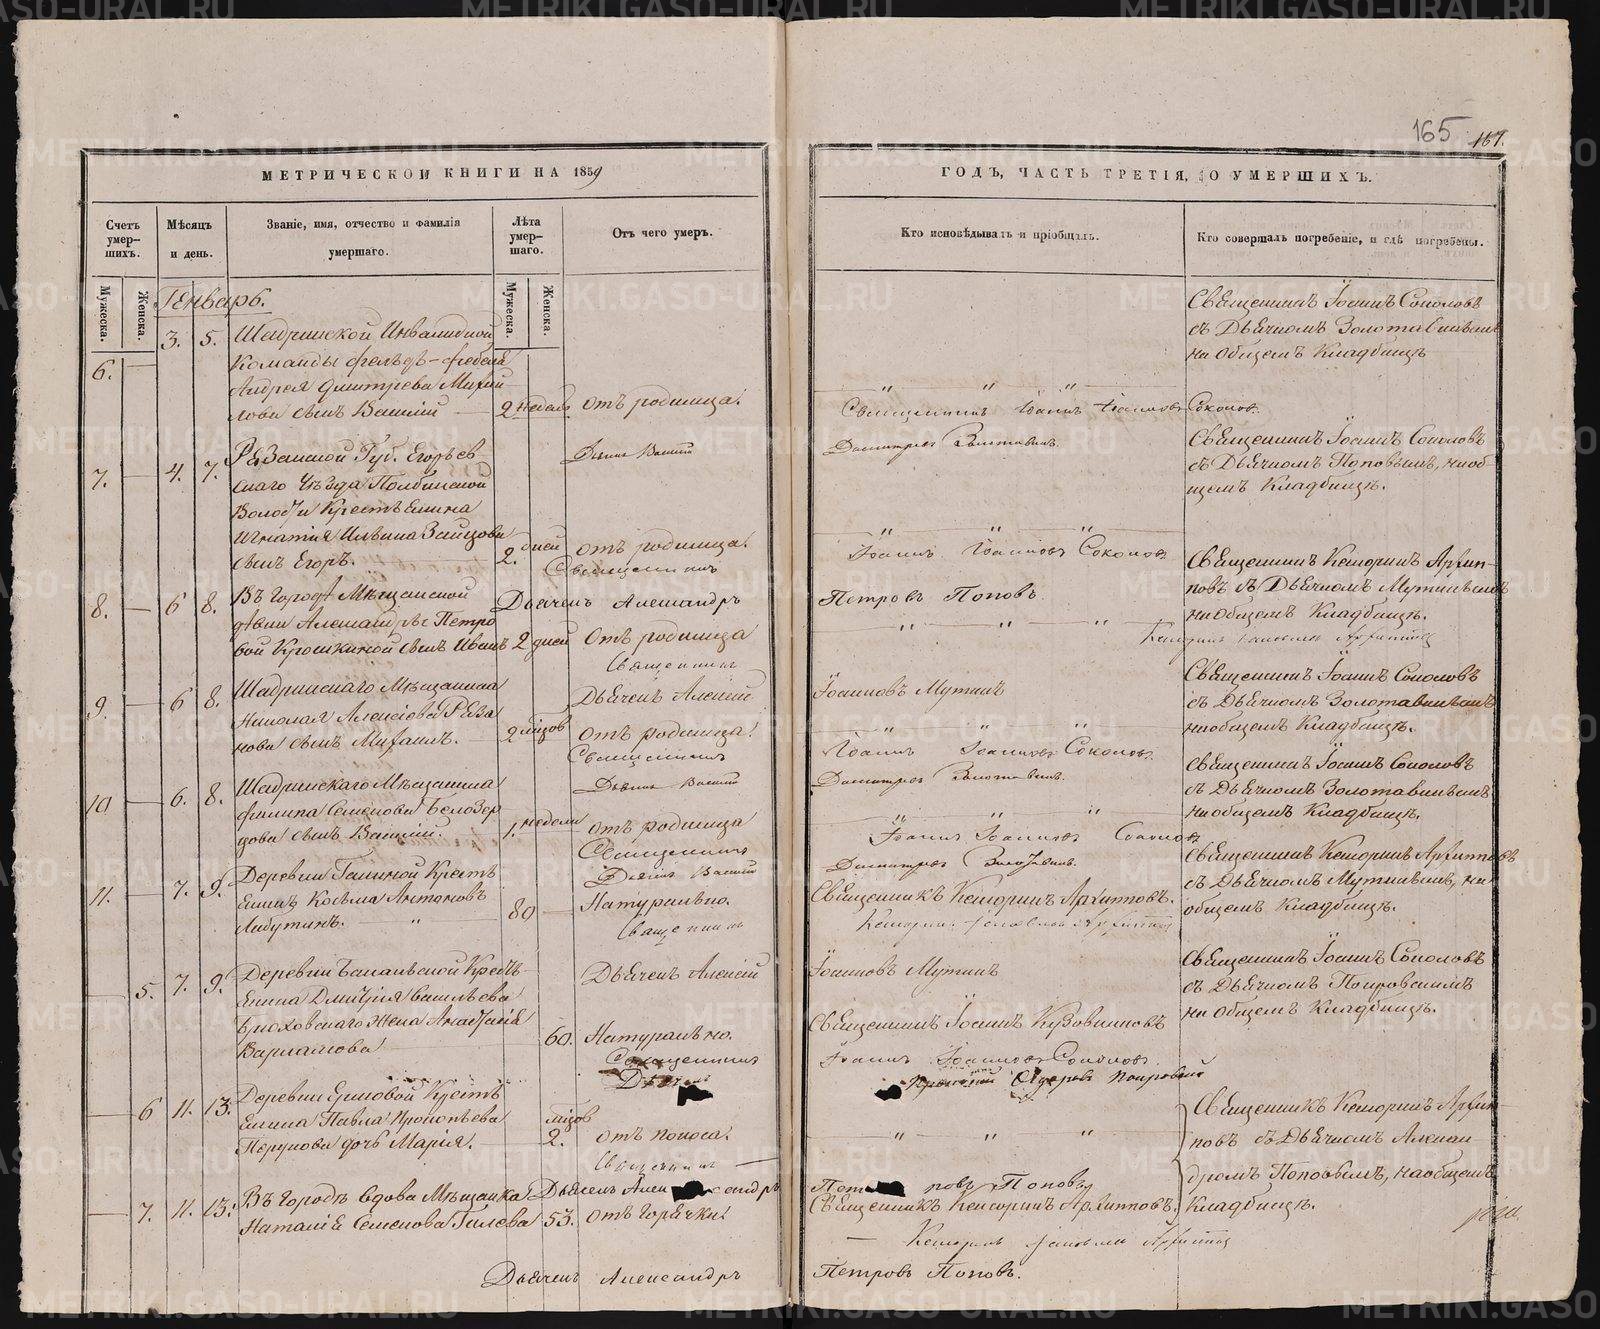 165
167.
МЕТРИЧЕСКОЙ КНИГИ НА 1859
Счетъ умер-шихъ.
Мѣсяцъ и день.
Званіе, имя, отчество и фамилія умершаго.
Лѣта умер-шаго.
Отъ чего умеръ.
Мужеска.
Женска.
Мужеска.
Женска.
Генварь.
6.
3. 5.
Шадринской Инвалидной
Команды фельдъ-фебеля
Андрея Дмитрева Михай
лова сынъ Василій
2 недель
отъ родимца.
Дьячекъ Василій
7.
4. 7.
Рязанской Губ. Егорьев
скаго Уѣзда
Волости Крестьянина
Игнатія Ильина Зайцова
сынъ Егоръ.
2. дней
отъ родимца.
Священникъ
8.
6 8.
Въ Городѣ Мѣщанской
дѣвки Александры Петро
вой Крошкиной сынъ Иванъ
Дьячекъ Александръ
2 дней
Отъ родимца
Священникъ
9.
6 8.
Шадринскаго Мѣщанина
Николая Алексѣева Ряза
нова сынъ Михаилъ.
Дьячекъ Алексѣй
2 мѣцов
отъ родимца.
Священникъ
10
6. 8.
Шадринскаго Мѣщанина
Филипа Семенова Белозер
цова сынъ Василій.
Дьячекъ Василій
1. недели
отъ родимца
Священникъ
Дьячекъ Василій
11.
7. 9.
Деревни Крестъ
янинъ Козьма Антоновъ
80
Натурально.
Священникъ
5.
7. 9.
Деревни Крестъ-
янина Дмитрія Васильева
Брюховскаго жена Анастасія
Варламова
Дьячекъ Алексѣй
60.
Натурально.
Священникъ
Дьячекъ
6
11. 13.
Деревни Ершовой Крестъ
янина Павла Прокопьева
Перунова дочь Марія.
мѣцов
2.
отъ поноса.
Священникъ
7.
11. 13.
Въ Городѣ вдова Мѣщанка
Наталія Семенова Гилева
Дьячекъ Александръ
53.
отъ Горячки.
Дьячекъ Александръ
ГОДЪ, ЧАСТЬ ТРЕТІЯ, О УМЕРШИХЪ.
Кто исповѣдывалъ и пріобщалъ.
Кто совершалъ погребеніе, и гдѣ погребены.
Священникъ Іоаннъ Соколовъ
съ Дьячкомъ Золотавинымъ
на общемъ Кладбищѣ
" " "
Священникъ Іоаннъ Іоанновъ Соколов.
Димитревъ Золотавинъ.
Священникъ Іоаннъ Соколовъ
съ Дьячкомъ Поповымъ, на об
щемъ Кладбищѣ.
" " "
Іоаннъ Іоанновъ Соколовъ
Петровъ Поповъ.
Священникъ Кенсоринъ Архип-
повъ съ Дьячкомъ Мутинымъ
на общемъ Кладбищѣ.
" " "
Іоанновъ Мутинъ
Священникъ Іоаннъ Соколовъ
съ Дьячкомъ Золотавинымъ
на общемъ Кладбищѣ.
" " "
Іоаннъ Іоанновъ Соколовъ.
Димитревъ Золотавинъ.
Священникъ Іоаннъ Соколовъ
съ Дьячкомъ Золотавинымъ
на общемъ Кладбищѣ.
"
Іоаннъ Іоанновъ Соколовъ
Димитревъ Золотавинъ.
Священникъ Кенсоринъ Архипповъ.
Священникъ Кенсоринъ Архипповъ
съ Дьячкомъ Мутинымъ, на
общемъ Кладбищѣ.
Іоанновъ Мутинъ
Священникъ Іоаннъ Кузовниковъ
Іоаннъ Іоанновъ Соколовъ.
Священникъ Іоаннъ Соколовъ
съ Дьячкомъ Покровскимъ
на общемъ Кладбищѣ.
" " "
Священникъ Кенсоринъ Архип
повъ съ Дьячкомъ Алексан
дромъ Поповымъ, на общемъ
Кладбищѣ.
Петровъ Поповъ
Священникъ Кенсоринъ Архипповъ.
Петровъ Поповъ.
METRIKI.GASO-URAL.RU